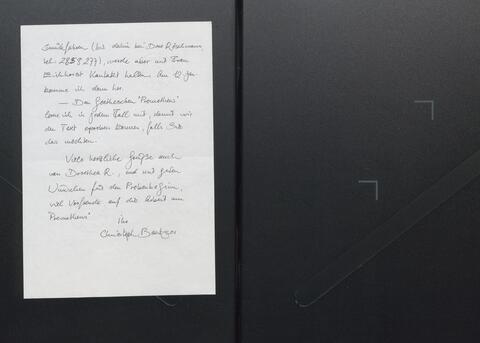 zurückfahren (bis dahin bei Dorothea R.,
Tel. 2853277), werde aber mit Ihrem
Kontakt halten. Am 12. Jan.
komme ich dann her.
— Den Goetheschen "Prometheus"
lerne ich in jedem Fall mit, damit wir
den Text sprechen können, falls Sie
das möchten.
Viele herzliche Grüße auch
von Dorothea R., und mit guten
Wünschen für den Probenbeginn,
viel Vorfreude auf die Arbeit am
"Prometheus"
Ihr
Christoph